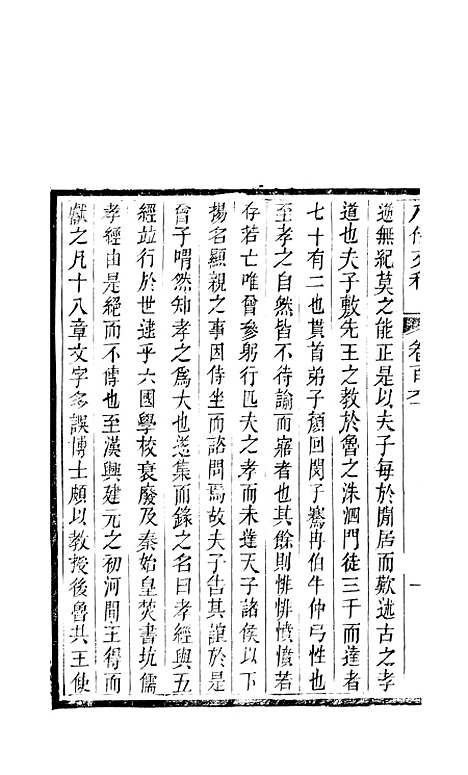 卷百九
一
逃無紀莫之能正是以夫子每於閒居而歎述古之孝
道也夫子敷先王之教於魯之洙泗門徒三千而達者
七十有二也貫首弟子顏回閔子騫冉伯牛仲弓性也
至孝之自然皆不待諭而寤者也其餘則悱悱憤憤若
存若亡唯曾參躬行匹夫之孝而未達天子諸侯以下
揚名顯親之事因侍坐而諮問焉故夫子告其誼於是
曾子喟然知孝之爲大也遂集而錄之名曰孝經與五
經竝行於世逮乎六國學校衰廢及秦始皇焚書坑儒
孝經由是絕而不傳也至漢興建元之初河間王得而
獻之凡十八章文字多誤博士頗以教授後魯共王使